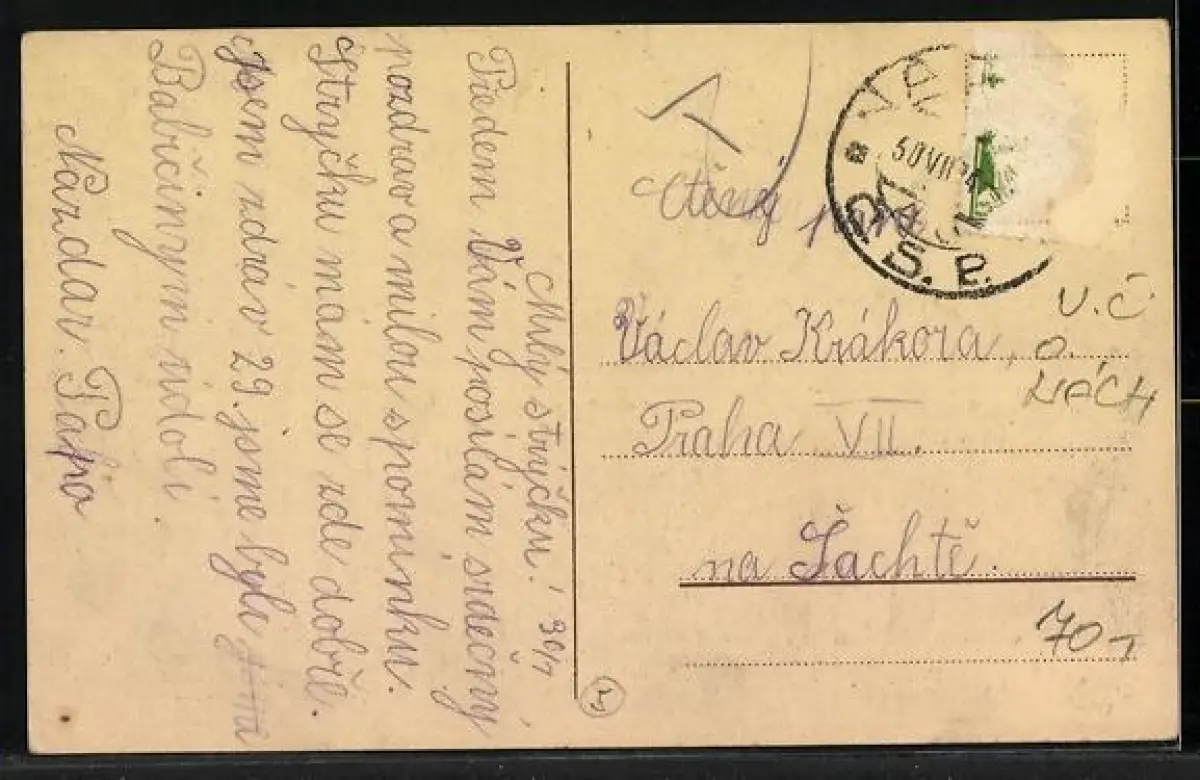 Milý strýčku! 30/7
Předem Vám posílám srdečný
pozdrav a milou spomínku.
Strýčku mám se zde dobře.
jsem zdráv 29. jsme byli
Babičiným údolí.
Nazdar. Pápa
Ctěný pan
Václav Krákora,
Praha VII.
na Šachtě.
V.Č
O.
NÁCH
70,-
S. P.